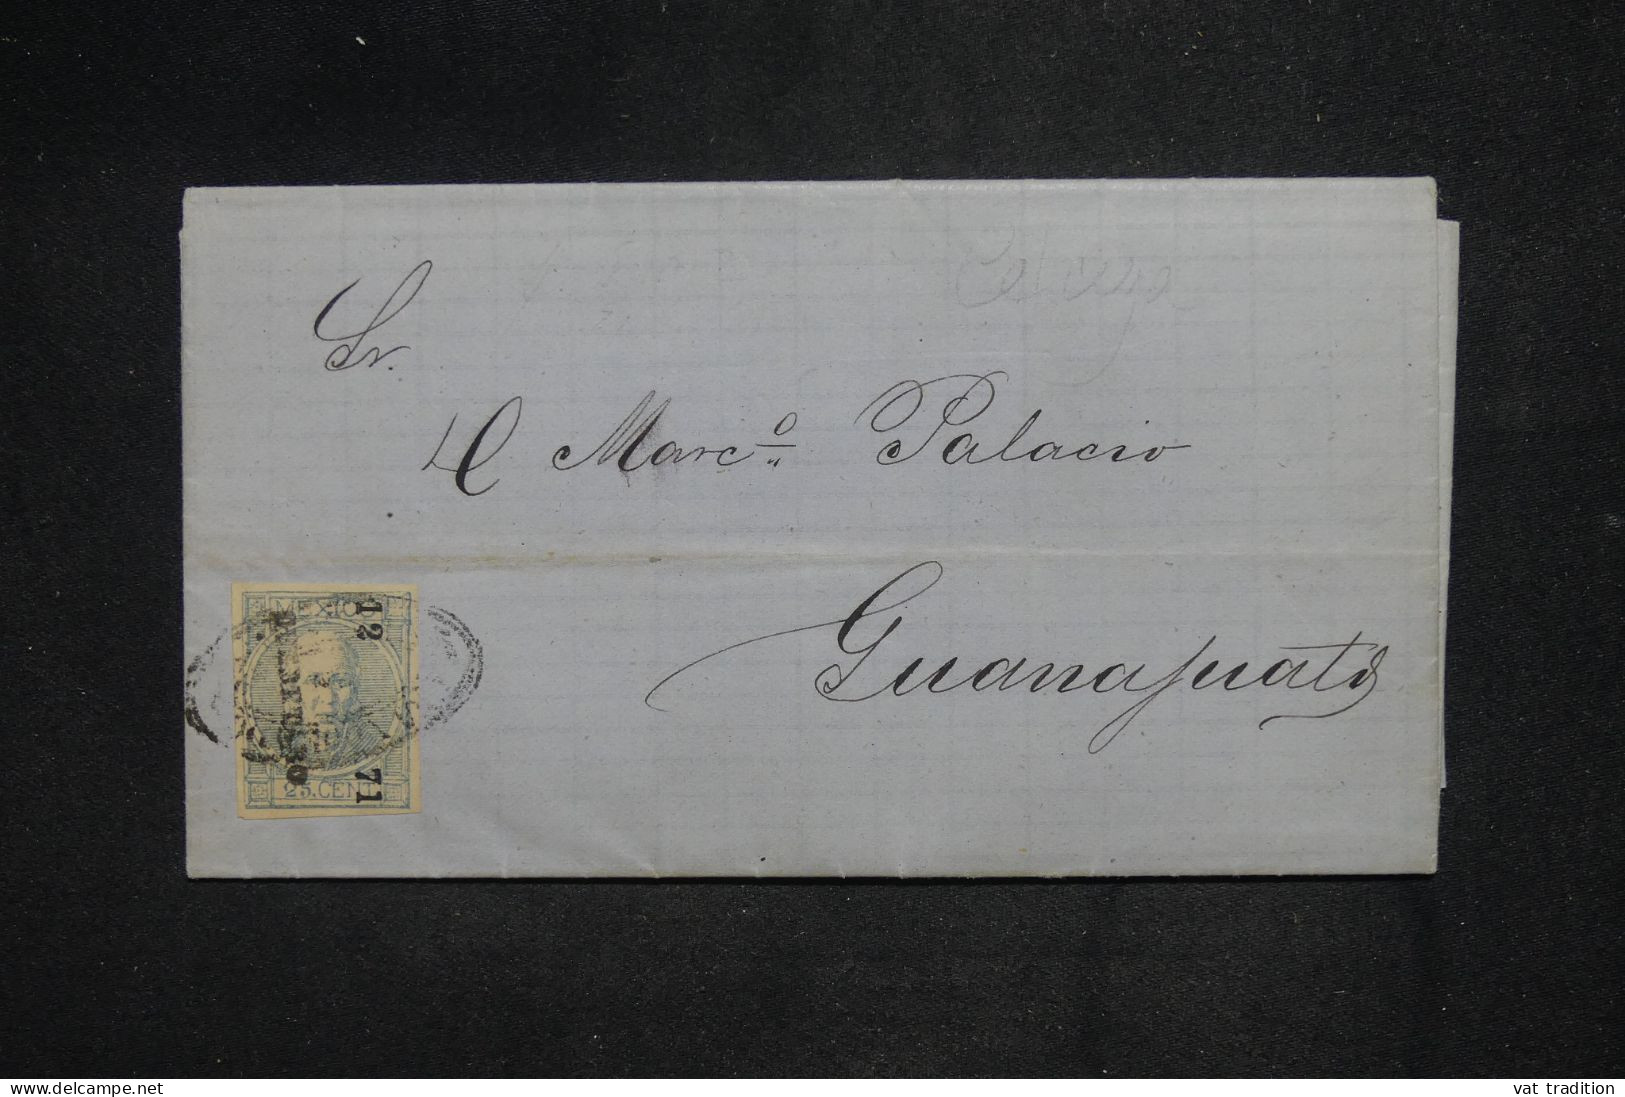 Sr.
D Marc.º Palacio
Guanajuato
MEXICO
12
71
25. CENT
delcampe.net
vat tradition